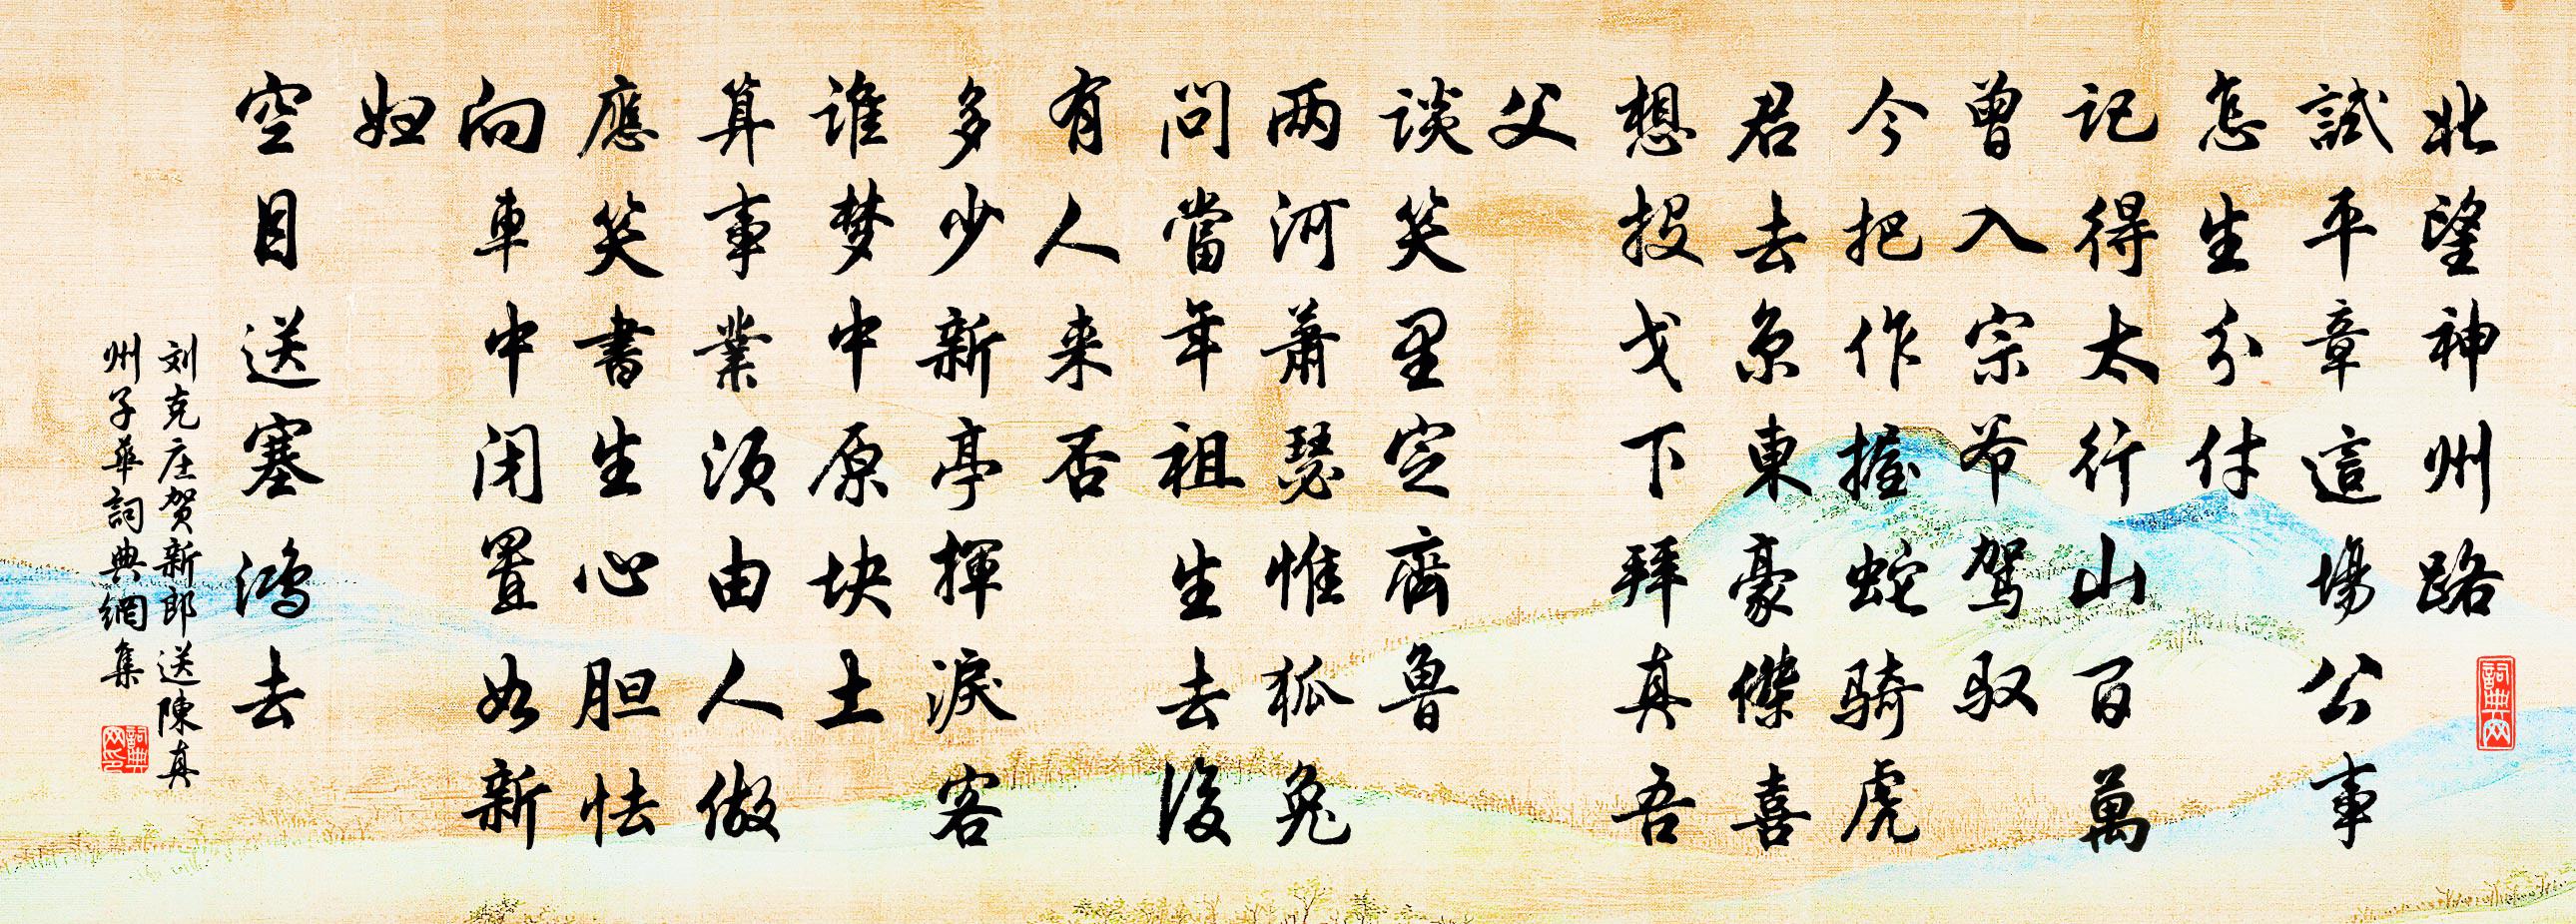 北望神州路
試平章這場公事
怎生分付
記得太行山百萬
曾入宗爷駕驭
今把作握蛇骑虎
君去京東豪傑喜
想投戈下拜真吾
父
谈笑里定齊魯
两河萧瑟惟狐兔
问當年祖生去後
有人来否
多少新亭揮淚客
谁梦中原块土
算事業須由人做
應笑書生心胆怯
向車中闭置如新
妇
空目送塞鸿去
刘克庄贺新郎送陳真
州子華詞典網集
詞典网
詞典网印